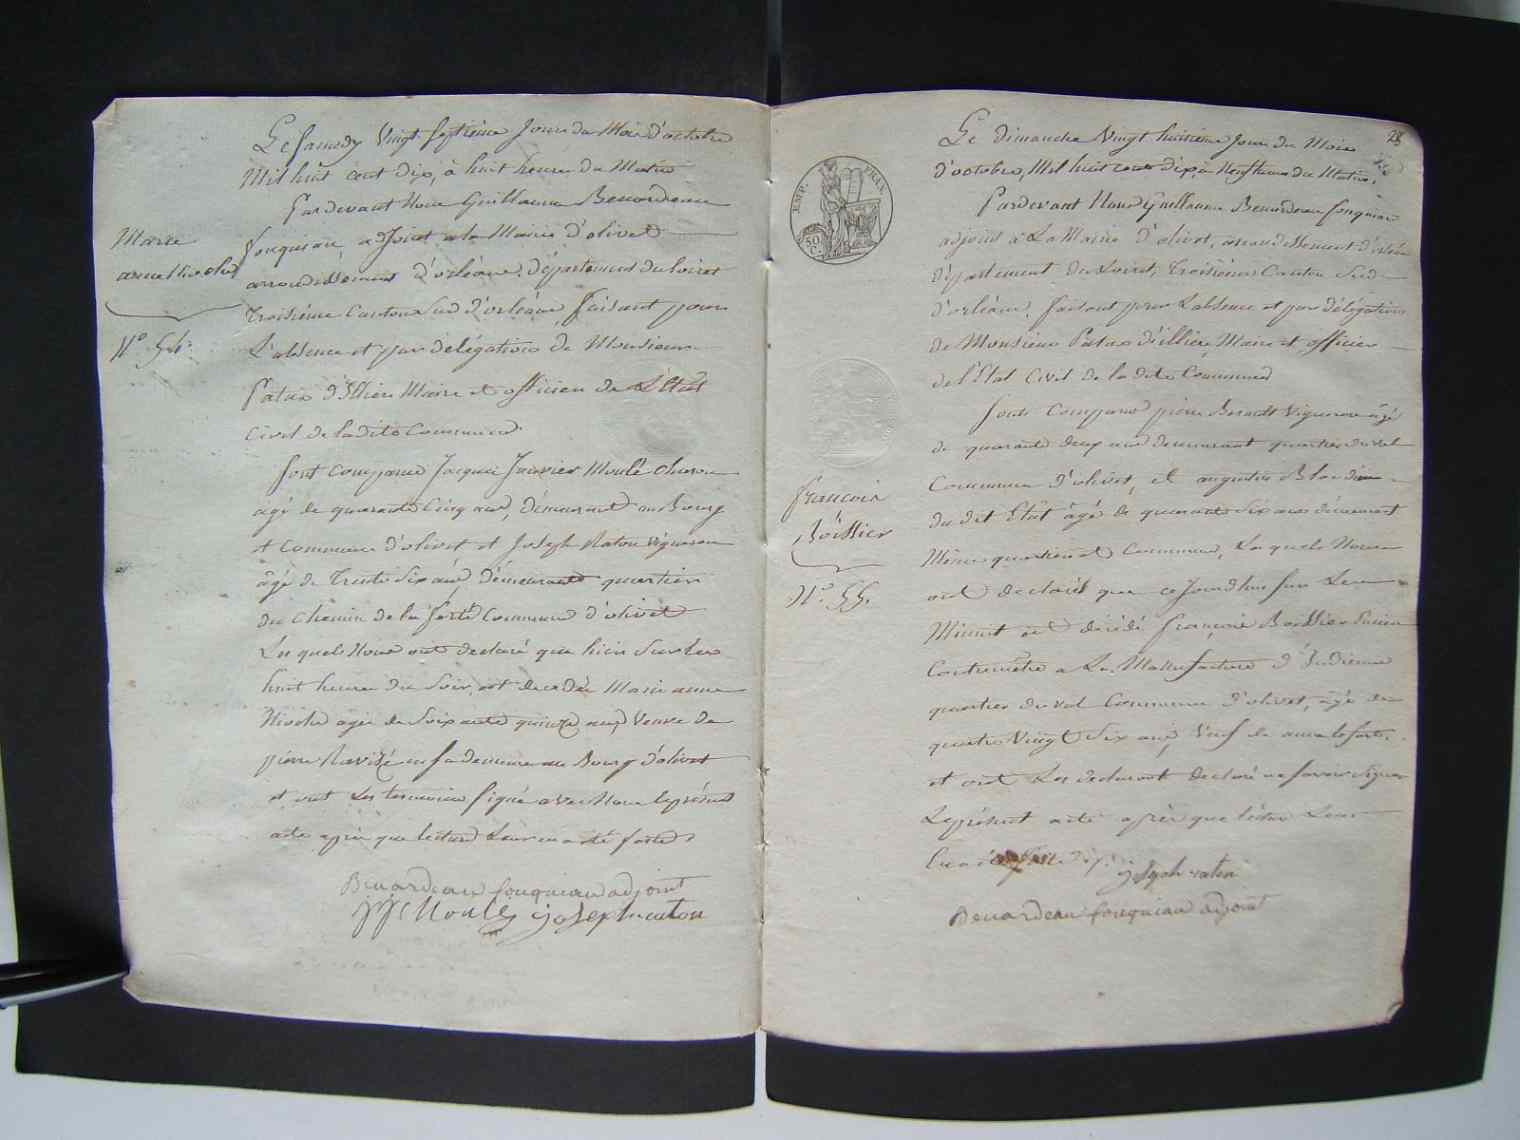 Le samedy Vingt Septieme Jour du Mois d'octobre
Mil huit cent dix, à huit heures du Matin
Pardevant Nous Guillaume Benardeau
fouquiau, adjoint a la Mairie d'olivet
arrondissement d'orléans, département du loiret
Troisième Canton Sud d'orléans faisant pour
L'absence et par délégation de Monsieur
Patas d'Illiers Maire et officier de L'Etat
Civil de la dite Commune
Marie
anne Nivolu
N° 54.
sont comparus Jacques Janvier Moulé
agé de quarante Cinq ans, demeurant au Bourg
et Commune d'olivet et Joseph Ratou Vigneron
âgé de Trente Six ans, demeurant quartier
du Chemin de la ferté Commune d'olivet
Lesquels Nous ont déclaré que hier Sur Les
huit heures du Soir, est décédée Marie anne
Nivolu agée de Soixante quinze ans, Veuve de
pierre en sa demeure au Bourg d'olivet
et ont Les temoins signé avec Nous le présent
acte après que lecture Leur en a été faite
Benardeau fouquiau adjoint
JJ Moulé joseph ratou
28
Le dimanche Vingt huitième Jour du Mois
d'octobre, Mil huit cent dix a Neuf heures du Matin.
Pardevant Nous Guillaume Benardeau fouquiau
adjoint à La Mairie d'olivet, arrondissement d'orléans
département du Loiret, Troisième Canton Sud
d'orléans, faisant pour L'absence et par délégation
de Monsieur Patas d'illiers, Maire et officier
de l'Etat Civil de la dite Commune
EMP. FRAN.
50 C.
Sont Comparus pierre Benoist Vigneron âgé
de quarante deux ans demeurant quartier du val
Commune d'olivet, et augustin
du dit Etat âgé de quarante Six ans demeurant
Même quartier et Commune, Lesquels Nous
ont déclaré que ce Jourd'hui sur Les
Minuit est décédé françois Boissier
Contremaitre a La Manufacture d'Indienne
quartier du val Commune d'olivet, agé de
quatre Vingt Six ans, Veuf de anne
et ont Les déclarants déclaré ne Savoir Signer
Le présent acte après que lecture Leur
En a été faite
françois
Boissier
N°. 55.
joseph ratou
Benardeau fouquiau adjoint